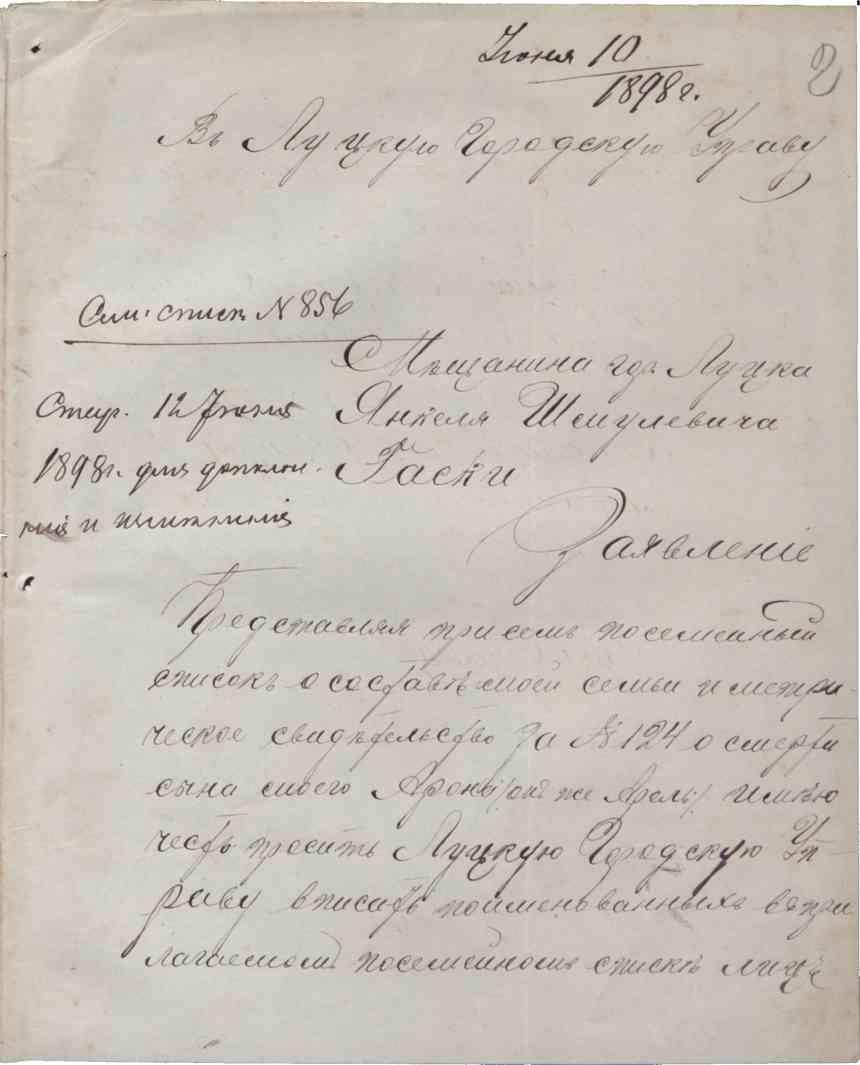 Июня 10
1898 г.
2
Въ Луцкую Городскую Управу
См. списк. N 856
Мѣщанина гор. Луцка
Янкеля Шмулевича
Гаски
12 Июня
1898 г. для
и
Заявленіе
Представляя при семъ посемейный
списокъ о составѣ моей семьи и метри-
ческое свидѣтельство за № 124 о смерти
сына моего Арона /онъ же Арель/ имѣю
честь просить Луцкую Городскую Уп-
раву вписать поименованныхъ въ при
лагаемомъ посемейномъ спискѣ лицъ